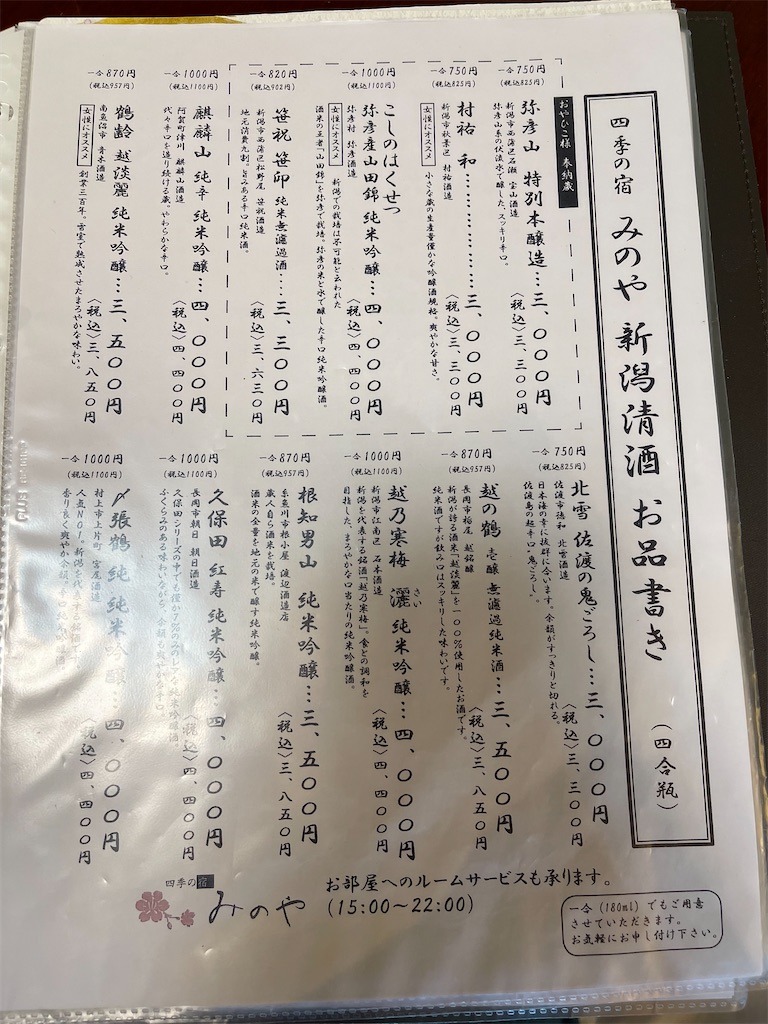 四季の宿 みのや 新潟清酒 お品書き (四合瓶)
おやひこ様 奉納蔵
一合750円
(税込825円)
弥彦山 特別本醸造…三、〇〇〇円
新潟市西蒲区石瀬 宝山酒造
弥彦山系の伏流水で醸した、スッキリ辛口。
〈税込〉三、三〇〇円
一合750円
(税込825円)
村祐 和………………三、〇〇〇円
新潟市秋葉区 村祐酒造
〈税込〉三、三〇〇円
女性にオススメ
小さな蔵の生産量僅かな吟醸酒規格。爽やかな甘さ。
一合1000円
(税込1100円)
こしのはくせつ
弥彦産山田錦 純米吟醸…四、〇〇〇円
弥彦村 弥彦酒造
〈税込〉四、四〇〇円
女性にオススメ
新潟での栽培は不可能と云われた
酒米の王者「山田錦」を弥彦で栽培。弥彦の米と水で醸した辛口純米吟醸酒。
一合820円
(税込902円)
笹祝 笹印 純米無濾過酒…三、三〇〇円
新潟市西蒲区松野尾 笹祝酒造
地元消費九割。旨みある辛口純米酒。
〈税込〉三、六三〇円
一合1000円
(税込1100円)
麒麟山 純辛 純米吟醸…四、〇〇〇円
阿賀町津川 麒麟山酒造
代々辛口を造り続ける蔵。やわらかな辛口。
〈税込〉四、四〇〇円
一合870円
(税込957円)
鶴齢 越淡麗 純米吟醸…三、五〇〇円
南魚沼市 青木酒造
〈税込〉三、八五〇円
女性にオススメ
創業三百年。雪室で熟成させたまろやかな味わい。
一合750円
(税込825円)
北雪 佐渡の鬼ごろし…三、〇〇〇円
佐渡市徳和 北雪酒造
日本海の幸に抜群に合います。余韻がすっきりと切れる。
佐渡島の超辛口“鬼ごろし”。
〈税込〉三、三〇〇円
一合870円
(税込957円)
越の鶴 壱醸 無濾過純米酒…三、五〇〇円
長岡市栃尾 越銘醸
新潟が誇る酒米「越淡麗」を一〇〇%使用したお酒です。
純米酒ですが飲み口はスッキリした味わいです。
〈税込〉三、八五〇円
一合1000円
(税込1100円)
越乃寒梅 灑 純米吟醸…四、〇〇〇円
さい
新潟市江南区 石本酒造
新潟を代表する銘酒「越乃寒梅」。食との調和を
目指した、まろやかな口当たりの純米吟醸酒。
〈税込〉四、四〇〇円
一合870円
(税込957円)
根知男山 純米吟醸…三、五〇〇円
糸魚川市根小屋 渡辺酒造店
蔵人自ら酒米を栽培。
酒米の全量を地元の米で醸す純米吟醸。
〈税込〉三、八五〇円
一合1000円
(税込1100円)
久保田 紅寿 純米吟醸…四、〇〇〇円
長岡市朝日 朝日酒造
久保田シリーズの中でも僅か7%のみのレア 米吟醸酒
ふくらみのある味わいながら、余韻も爽やかな辛口。
〈税込〉四、四〇〇円
一合1000円
(税込1100円)
〆張鶴 純 純米吟醸…四、〇〇〇円
村上市上片町 宮尾酒造
人気NO1。新潟を代表する銘酒
香り良く爽やか余韻。辛口純米吟醸酒
〈税込〉四、四〇〇円
四季の宿 みのや
お部屋へのルームサービスも承ります。
(15:00〜22:00)
一合(180ml)でもご用意
させていただきます。
お気軽にお申し付け下さい。